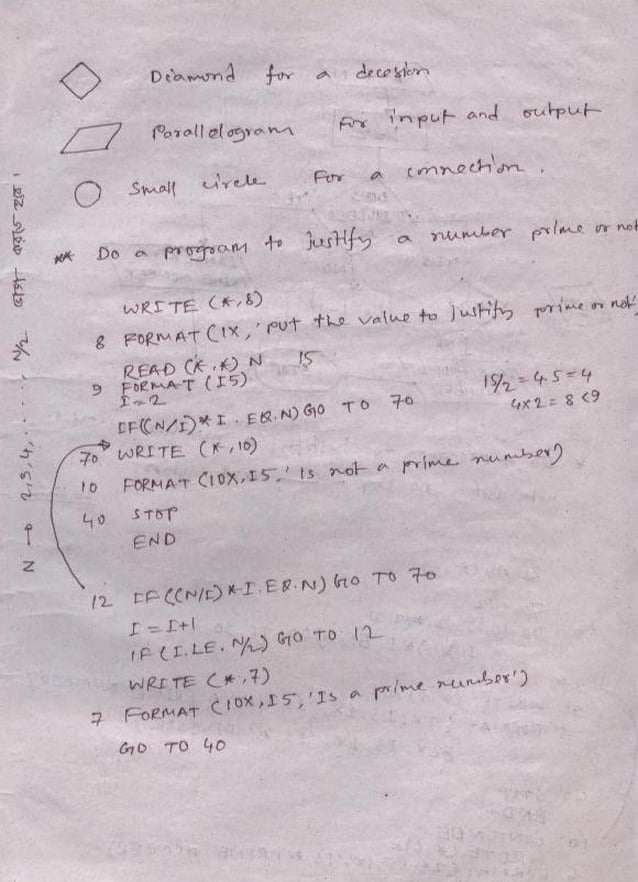 Diamond for a decesion
Parallelogram For input and output
Small circle For a connection.
** Do a program to justify a number prime or not
WRITE (*,8)
8 FORMAT (1X,'put the value to justify prime or not',
READ (*,*) N 15
9 FORMAT (I5)
I=2
IF((N/I)*I.EQ.N) GO TO 70
15/2 = 4.5=4
4x2=8<9
70 WRITE (*,10)
10 FORMAT (10X,I5,'Is not a prime number)
40 STOP
END
12 IF ((N/I)*I.EQ.N) GO TO 70
I=I+1
IF (I.LE.N/2) GO TO 12
WRITE (*,7)
7 FORMAT (10X,I5,'Is a prime number')
GO TO 40
N → 2,3,4,..... N/2 ভাগ করতে হবে।